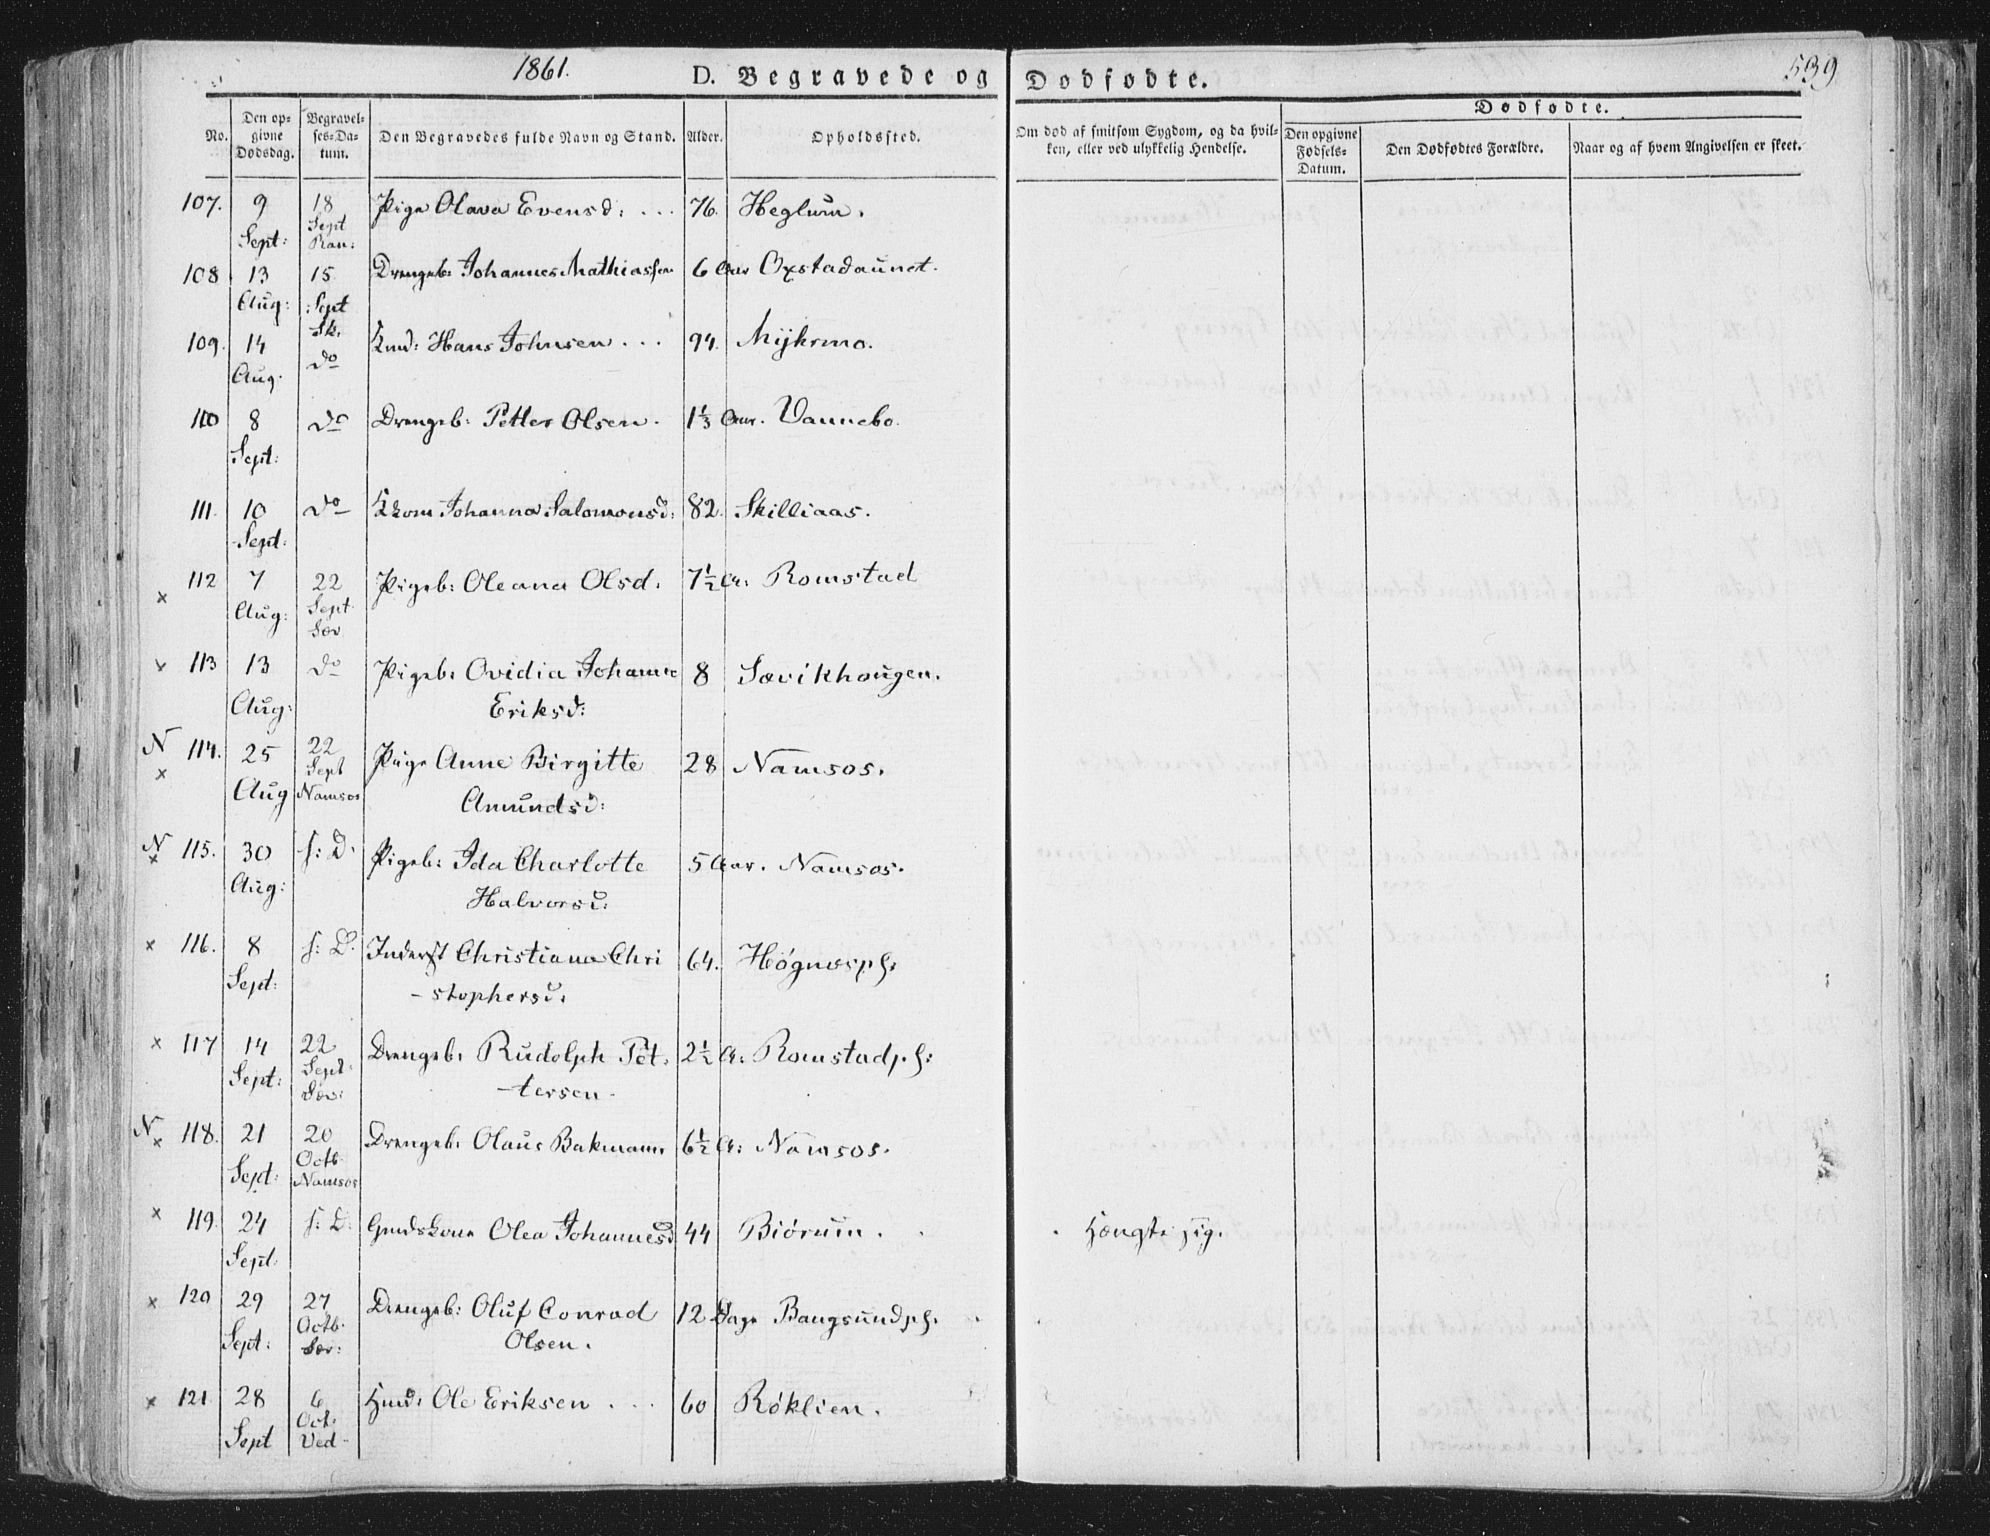 1861.
D. Begravede og Dødfødte.
539
No.
Den opgivne Dødsdag.
Begravelses-Datum.
Den Begravedes fulde Navn og Stand.
Alder.
Opholdssted.
Om død af smitsom Sygdom, og da hvilken, eller ved ulykkelig Hendelse.
Dødfødte.
Den opgivne Fødsels-Datum.
Den Dødfødtes Forældre.
Naar og af hvem Angivelsen er skeet.
107. 9 Sept: 18 Sept Ran: Pige Olava Evensd: 76. Heglum.
108 13 Aug: 15 Sept Sk. Drengeb: Johannes Mathiassen 6 Aar Oxstadaunet.
109. 14 Aug. do Hans Johnsen 94. Mykrmo.
110 8 Sept: do Drengeb: Petter Olsen. 1 1/3 Aar. Vannebo.
111. 10 Sept: do Johanna Salomonsd: 82. Skilliaas.
x 112 7 Aug: 22 Sept. Sæv Pigeb: Oleana Olsd. 7 1/2 A: Romstad
x 113 13 Aug: do Pigeb: Ovidia Johanne 8 Sævikhougen.
Eriksd:
N x 114. 25 Aug 22 Sept Namsos Pige Anne Birgitte 28 Namsos.
Amundsd:
N x 115. 30 Aug: f: D. Pigeb: Ida Charlotte 5 Aar. Namsos.
Halvorsd:
x 116. 8 Sept: f: D. Inderst Christiana Chri 64. Høgnæspl:
-stophersd.
x 117 14 Sept: 22 Sept: Sæv: Drengeb: Rudolph Pet- 2 1/2 A: Romstadpl:
-tersen.
N x 118. 21 Sept: 20 Octb. Namsos Drengeb: Olaus Bakmann. 6 1/2 A: Namsos.
x 119. 24 Sept. f: D: Olea Johannesd 44 Biørum. Hængte sig.
x 120 29 Sept: 27 Octb. Sæv: Drengeb: Oluf Conrad 12 Dage Bangsundpl.
Olsen.
x 121 28 Sept 6 Oct. Ved- Ole Eriksen 60 Røklien.